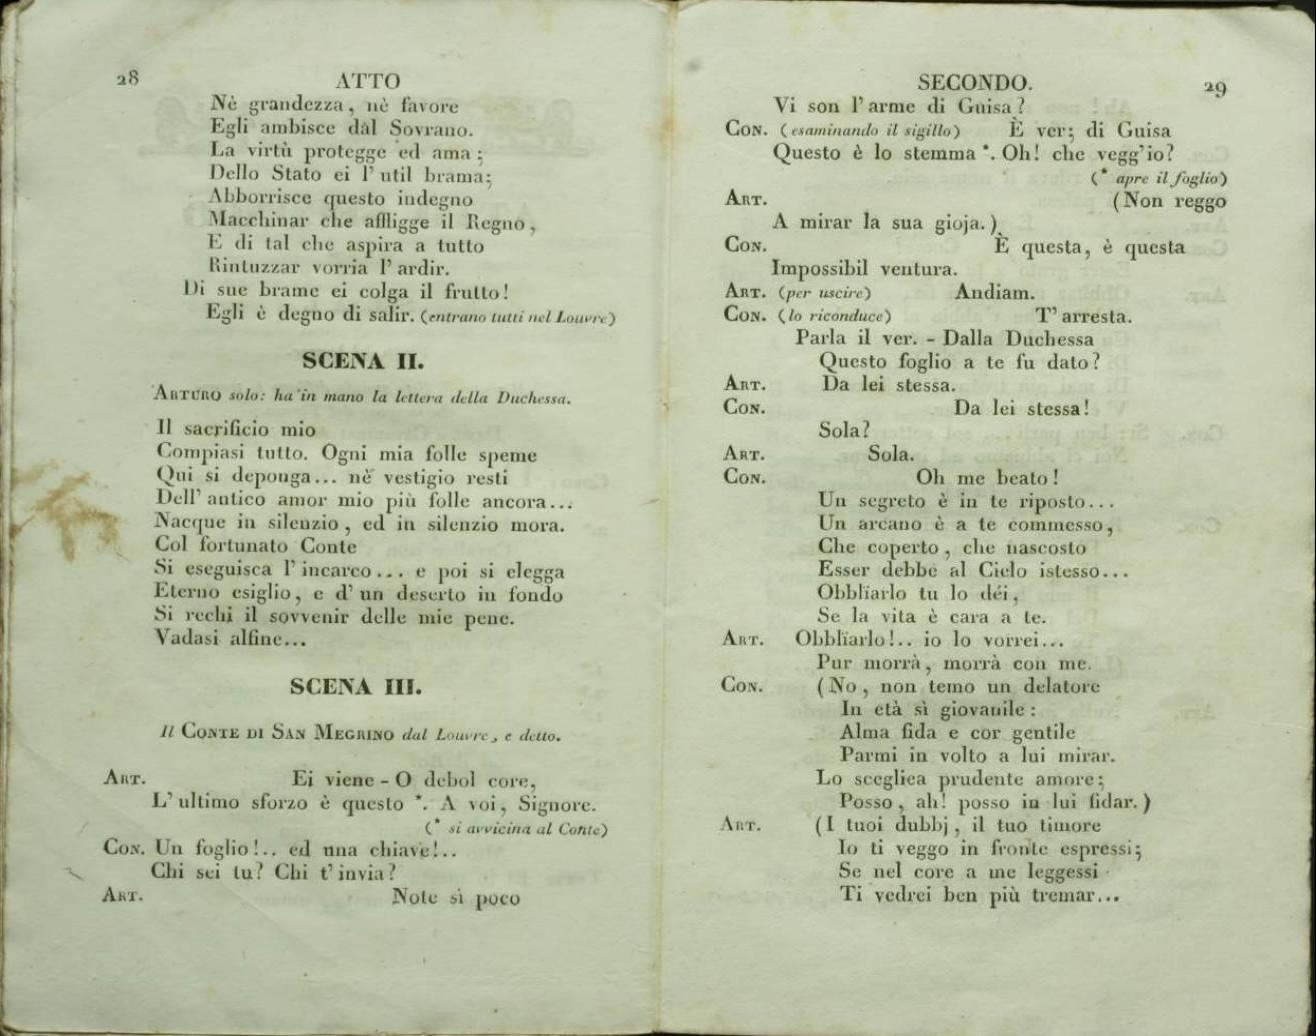 28
ATTO
Nè grandezza, nè favore
Egli ambisce dal Sovrano.
La virtù protegge ed ama;
Dello Stato ei l'util brama;
Abborrisce questo indegno
Macchinar che affligge il Regno,
E di tal che aspira a tutto
Rintuzzar vorria l'ardir.
Di sue brame ei colga il frutto!
Egli è degno di salir. (entrano tutti nel Louvre)
SCENA II.
ARTURO solo: ha in mano la lettera della Duchessa.
Il sacrificio mio
Compiasi tutto. Ogni mia folle speme
Qui si deponga... nè vestigio resti
Dell'antico amor mio più folle ancora...
Nacque in silenzio, ed in silenzio mora.
Col fortunato Conte
Si eseguisca l'incarco... e poi si elegga
Eterno esiglio, e d'un deserto in fondo
Si rechi il sovvenir delle mie pene.
Vadasi alfine...
SCENA III.
Il CONTE DI SAN MEGRINO dal Louvre, e detto.
ART. Ei viene - O debol core,
L'ultimo sforzo è questo *. A voi, Signore.
(* si avvicina al Conte)
CON. Un foglio!.. ed una chiave!..
Chi sei tu? Chi t'invia?
ART. Note sì poco
SECONDO.
29
Vi son l'arme di Guisa?
CON. (esaminando il sigillo) È ver; di Guisa
Questo è lo stemma *. Oh! che vegg'io?
(* apre il foglio)
ART. (Non reggo
A mirar la sua gioja.)
CON. È questa, è questa
Impossibil ventura.
ART. (per uscire) Andiam.
CON. (lo riconduce) T'arresta.
Parla il ver. - Dalla Duchessa
Questo foglio a te fu dato?
ART. Da lei stessa.
CON. Da lei stessa!
Sola?
ART. Sola.
CON. Oh me beato!
Un segreto è in te riposto...
Un arcano è a te commesso,
Che coperto, che nascosto
Esser debbe al Cielo istesso...
Obblïarlo tu lo déi,
Se la vita è cara a te.
ART. Obblïarlo!.. io lo vorrei...
Pur morrà, morrà con me.
CON. (No, non temo un delatore
In età sì giovanile:
Alma fida e cor gentile
Parmi in volto a lui mirar.
Lo scegliea prudente amore;
Posso, ah! posso in lui fidar.)
ART. (I tuoi dubbj, il tuo timore
Io ti veggo in fronte espressi;
Se nel core a me leggessi
Ti vedrei ben più tremar...